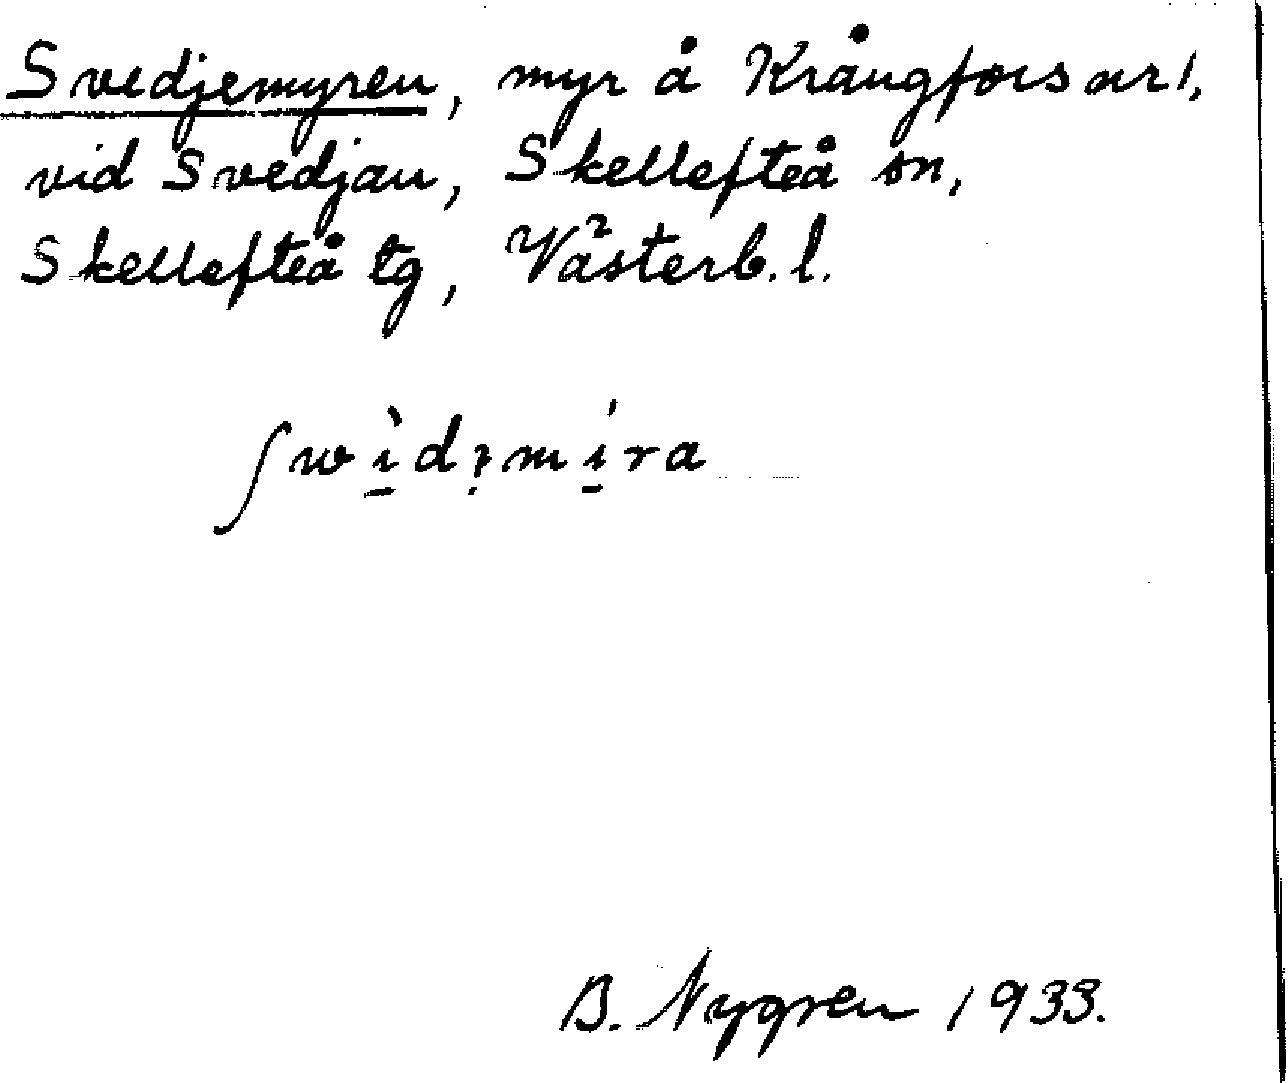 Svedjemyren, myr å Krångfors nr 1,
vid Svedjan, Skellefteå sn,
Skellefteå tg, Västerb. l.
B. Nygren 1933.